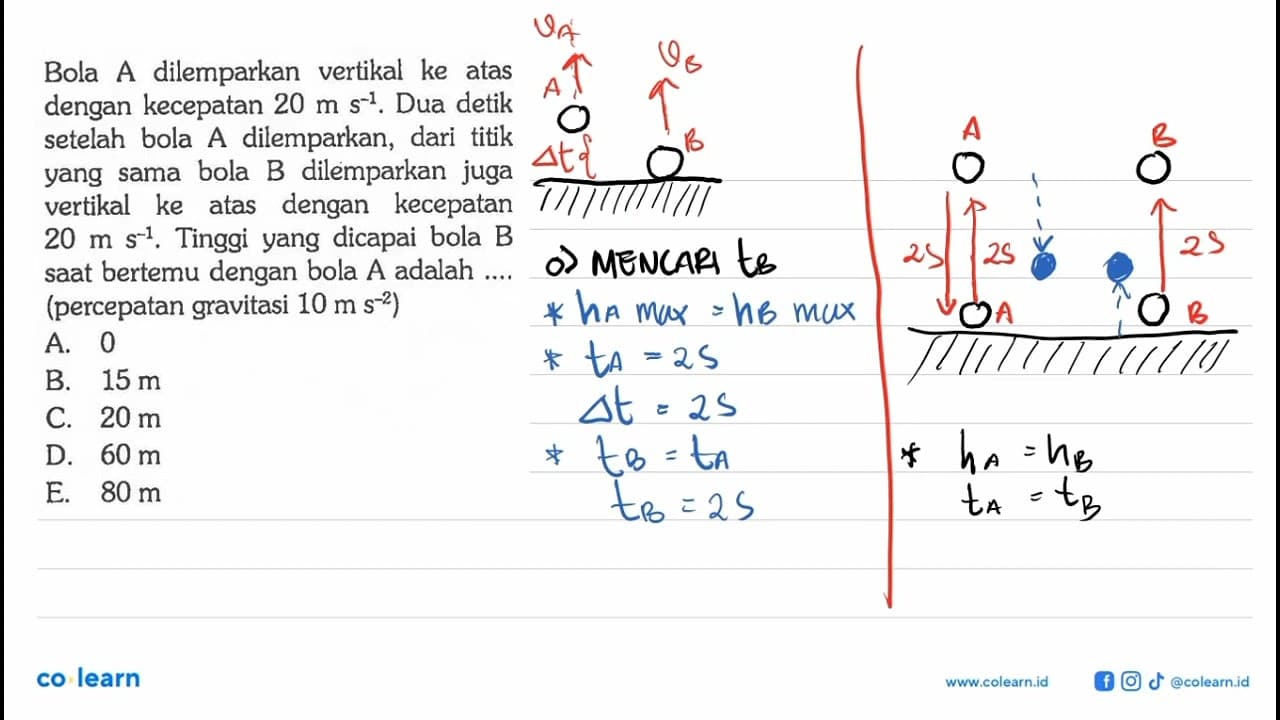 Bola A dilemparkan vertikal ke atas
dengan kecepatan 20 m s⁻¹. Dua detik
setelah bola A dilemparkan, dari titik
yang sama bola B dilemparkan juga
vertikal ke atas dengan kecepatan
20 m s⁻¹. Tinggi yang dicapai bola B
saat bertemu dengan bola A adalah ....
(percepatan gravitasi 10 m s⁻²)
A. 0
B. 15 m
C. 20 m
D. 60 m
E. 80 m
vA
vB
A
B
Δt{
o) MENCARI tB
* hA max = hB max
* tA = 2S
Δt = 2S
* tB = tA
tB = 2S
A
B
2S
2S
2S
A
B
* hA = hB
tA = tB
co learn
www.colearn.id
@colearn.id